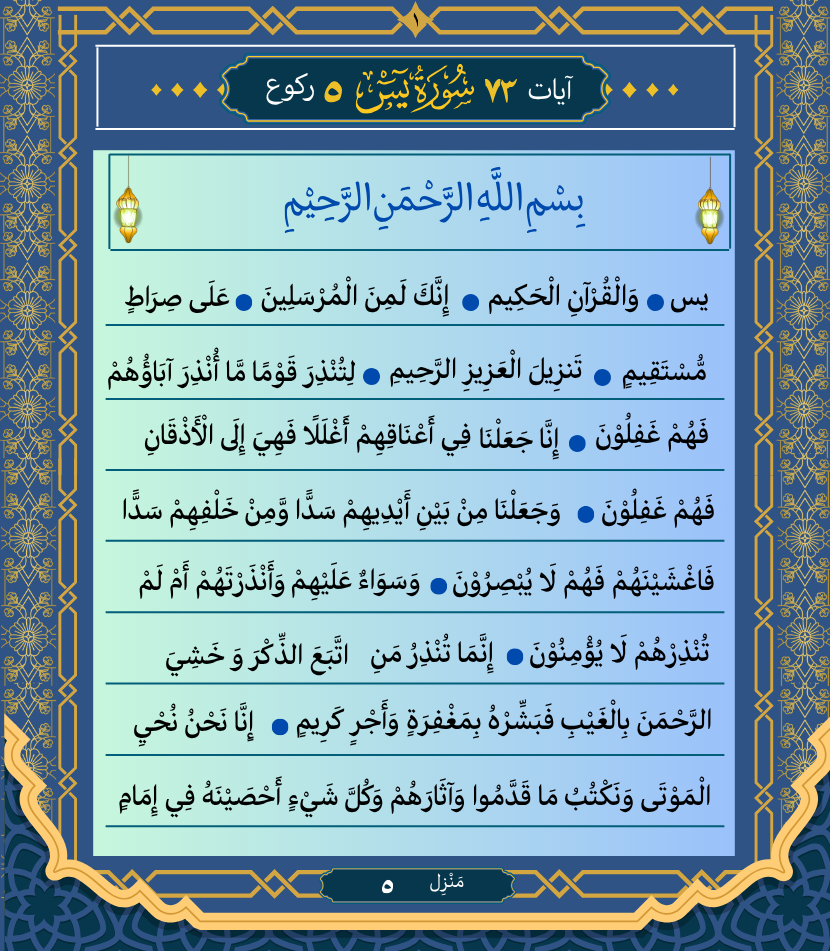 ١
آيات ٧٣ سُورَةُ يٓسٓ ٥ ركوع
بِسْمِ اللَّهِ الرَّحْمَنِ الرَّحِيْمِ
يس ● وَالْقُرْآنِ الْحَكِيم ● إِنَّكَ لَمِنَ الْمُرْسَلِينَ ● عَلَى صِرَاطٍ
مُّسْتَقِيمٍ ● تَنزِيلَ الْعَزِيزِ الرَّحِيمِ ● لِتُنْذِرَ قَوْمًا مَّا أُنْذِرَ آبَاؤُهُمْ
فَهُمْ غَفِلُوْنَ ● إِنَّا جَعَلْنَا فِي أَعْنَاقِهِمْ أَغْلَلًا فَهِيَ إِلَى الْأَذْقَانِ
فَهُمْ غَفِلُوْنَ ● وَجَعَلْنَا مِنْ بَيْنِ أَيْدِيهِمْ سَدًّا وَّمِنْ خَلْفِهِمْ سَدًّا
فَاغْشَيْنَهُمْ فَهُمْ لَا يُبْصِرُوْنَ ● وَسَوَاءٌ عَلَيْهِمْ وَأَنْذَرْتَهُمْ أَمْ لَمْ
تُنْذِرْهُمْ لَا يُؤْمِنُوْنَ ● إِنَّمَا تُنْذِرُ مَنِ اتَّبَعَ الذِّكْرَ وَ خَشِيَ
الرَّحْمَنَ بِالْغَيْبِ فَبَشِّرْهُ بِمَغْفِرَةٍ وَأَجْرٍ كَرِيمٍ ● إِنَّا نَحْنُ نُحْيِ
الْمَوْتَى وَنَكْتُبُ مَا قَدَّمُوا وَآثَارَهُمْ وَكُلَّ شَيْءٍ أَحْصَيْنَهُ فِي إِمَامٍ
مَنْزِل ٥